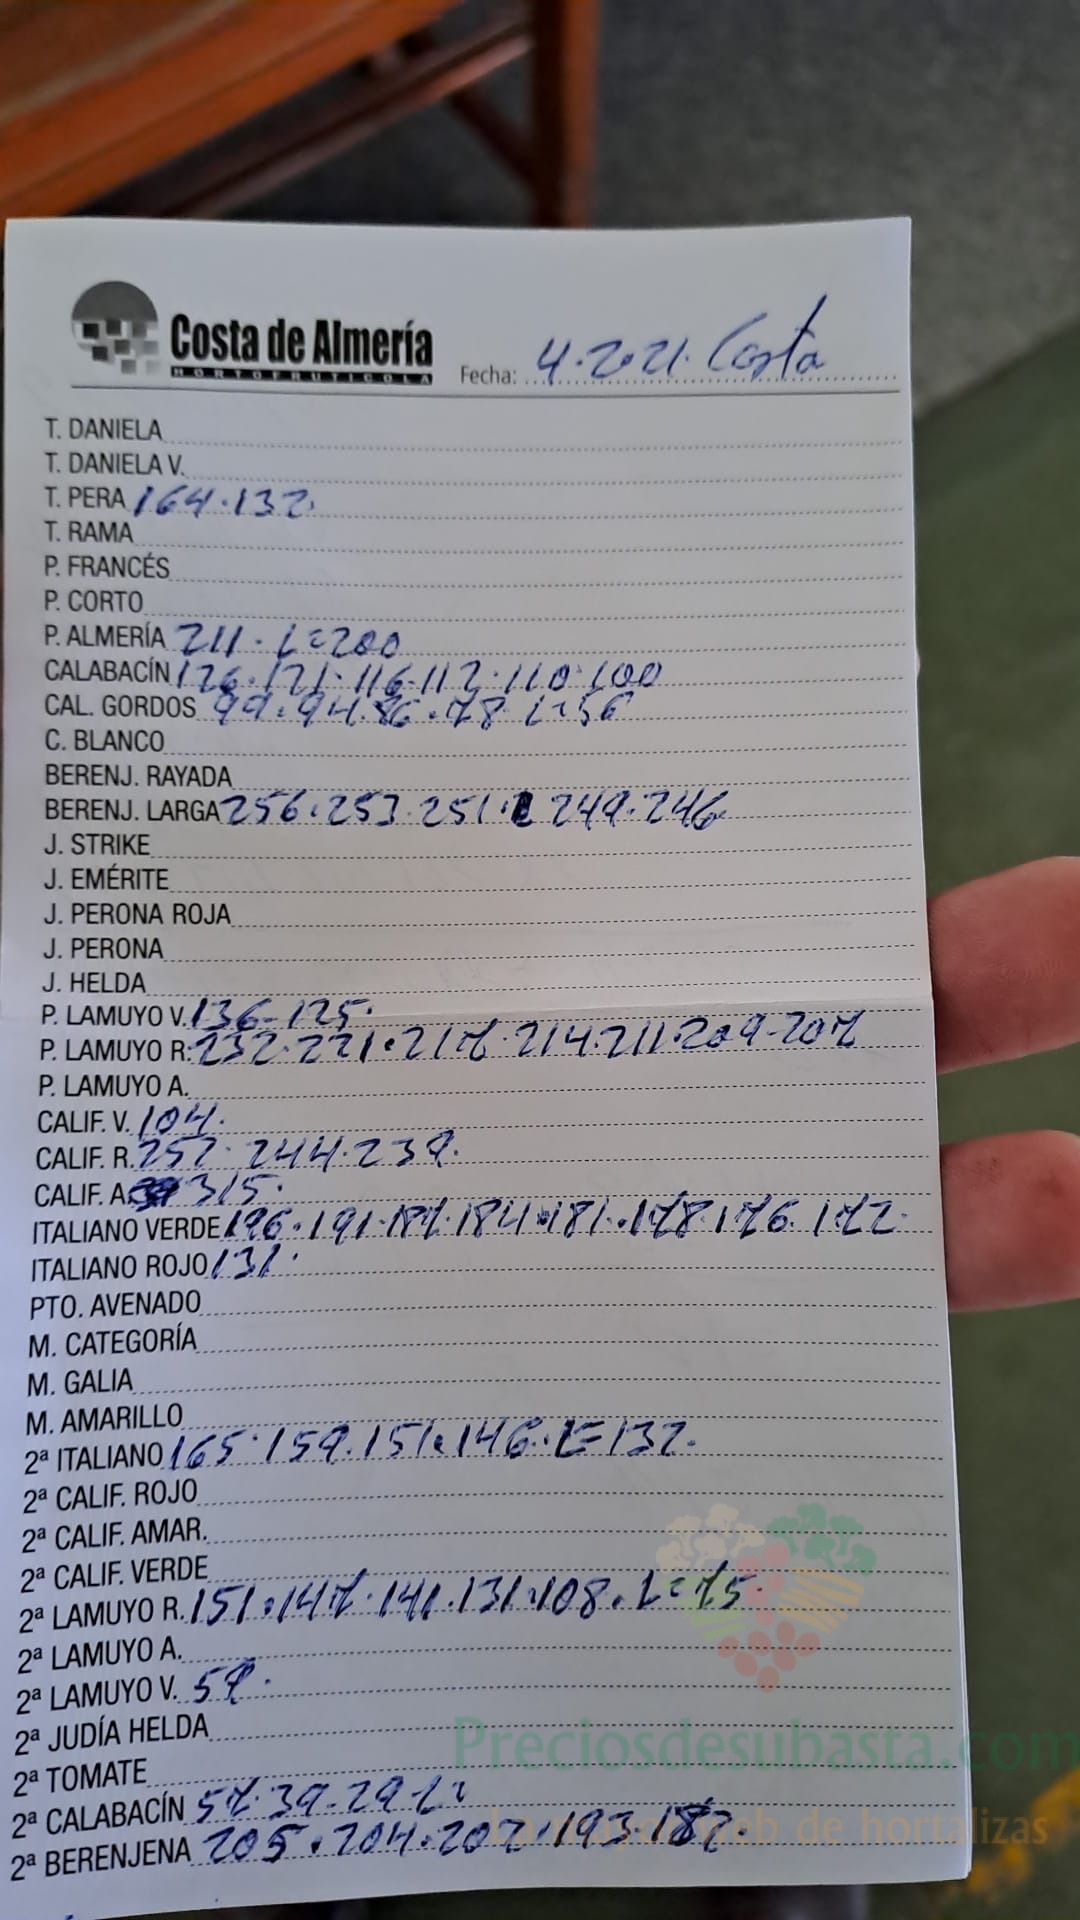 Costa de Almería
HORTOFRUTICOLA
Fecha: 4.2.21. Costa
T. DANIELA
T. DANIELA V.
T. PERA 164.132.
T. RAMA
P. FRANCÉS
P. CORTO
P. ALMERÍA 211. L=200
CALABACÍN 126.121.116.112.110.100
CAL. GORDOS 99.94.86.78 L=56
C. BLANCO
BERENJ. RAYADA
BERENJ. LARGA 256.253.251. 249.246
J. STRIKE
J. EMÉRITE
J. PERONA ROJA
J. PERONA
J. HELDA
P. LAMUYO V. 136-125.
P. LAMUYO R. 232.221.217.214.211.209-207
P. LAMUYO A.
CALIF. V. 104.
CALIF. R. 252.244.239.
CALIF. A. 315.
ITALIANO VERDE 196.191.187.184.181.178.176.172.
ITALIANO ROJO 131.
PTO. AVENADO
M. CATEGORÍA
M. GALIA
M. AMARILLO
2ª ITALIANO 165.159.151.146.L=132.
2ª CALIF. ROJO
2ª CALIF. AMAR.
2ª CALIF. VERDE
2ª LAMUYO R. 151.147.141.131.108.L=75.
2ª LAMUYO A.
2ª LAMUYO V. 59.
2ª JUDÍA HELDA
Preciosdesubasta.com
2ª TOMATE
2ª CALABACÍN 57.39.29
La mayor web de hortalizas
2ª BERENJENA 205.204.202.193.182